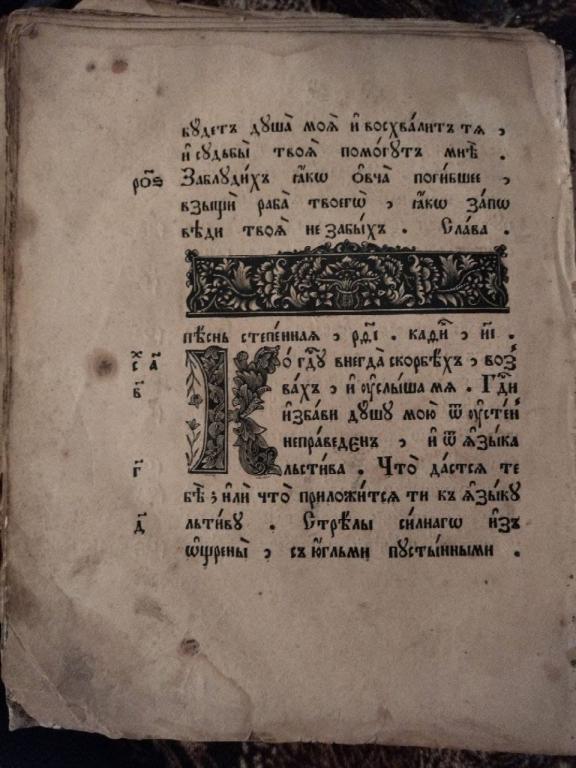 бꙋдетъ дꙋша̀ моѧ̀ и҆ восхва́литъ тѧ ,
и҆ сꙋдьбы̀ твоѧ̀ помо́гꙋтъ мнѣ̀ .
ро҃ѕ Заблꙋди́хъ ꙗ҆́кѡ ѻ҆вча̀ поги́бшее ,
взыщѝ раба̀ твоегѡ̀ , ꙗ҆́кѡ за́пѡ
вѣди твоѧ̀ не забы́хъ . Сла́ва .
пѣ́снь степе́ннаѧ , рѳ҃і . каѳи́ , и҃і .
К о гд҇ꙋ внегда̀ скорбѣ́хъ , воз̾
а҃ ва́хъ , и҆ ᲂу҆слы́ша мѧ . Гд҇и
в҃ и҆зба́ви дꙋ́шꙋ мою̀ ѿ ᲂу҆сте́нъ
непра́веденъ , и҆ ѿ ѧ҆зы́ка
г҃ льсти́ва . Что̀ да́стсѧ те
бѣ̀ ; и҆лѝ что̀ приложи́тсѧ ти къ ѧ҆зы́кꙋ
д҃ льти́вꙋ . Стрѣ́лы си́лнагѡ и҆з̾
ѡ҆щре́ны̀ , съ ю҆́гльми пꙋсты́нными .